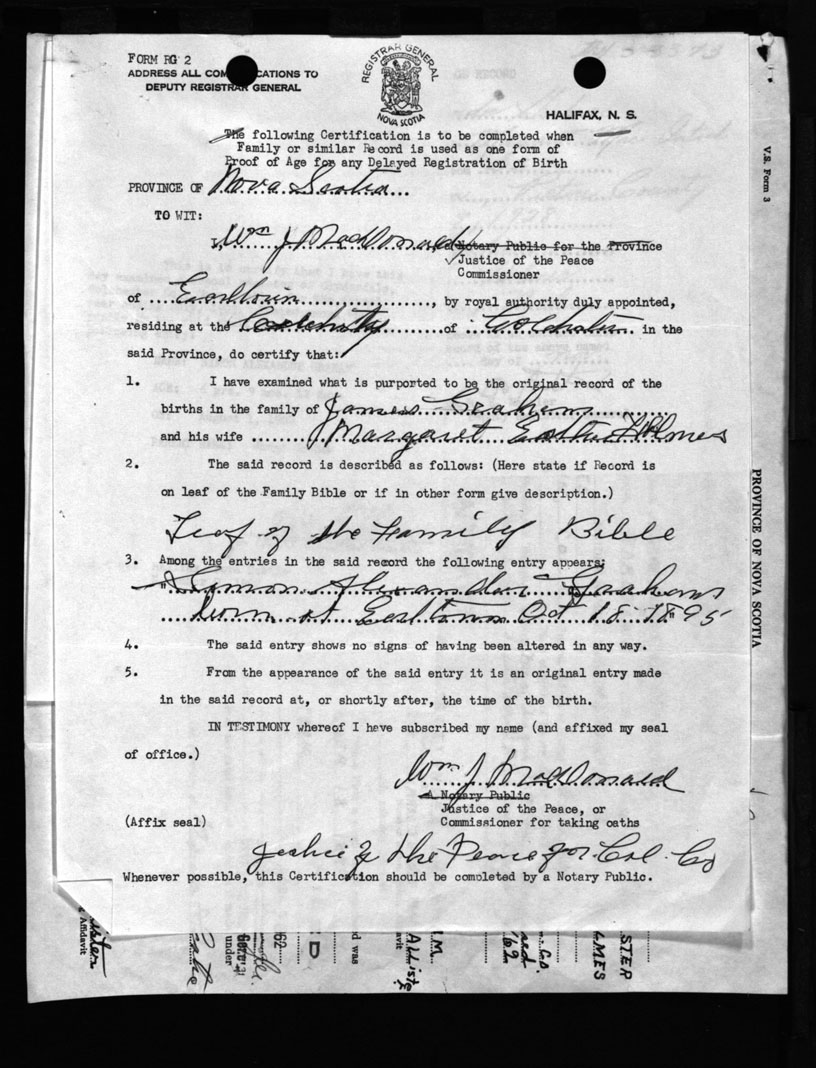 FORM RG 2
ADDRESS ALL COM CATIONS TO
DEPUTY REGISTRAR GENERAL
REGISTRAR GENERAL
NOVA SCOTIA
HALIFAX, N. S.
The following Certification is to be completed when
Family or similar Record is used as one form of
Proof of Age for any Delayed Registration of Birth
PROVINCE OF Nova Scotia
TO WIT:
I, Wm J MacDonald, a Notary Public for the Province
✓Justice of the Peace
Commissioner
of ...., by royal authority duly appointed,
residing at the .... of Colchester in the
said Province, do certify that:
1. I have examined what is purported to be the original record of the
births in the family of James Graham
and his wife Margaret Esther Holmes
2. The said record is described as follows: (Here state if Record is
on leaf of the Family Bible or if in other form give description.)
Leaf of the Family Bible
3. Among the entries in the said record the following entry appears:
"Simon Alexander Graham
born at Earltown Oct 18 1895"
4. The said entry shows no signs of having been altered in any way.
5. From the appearance of the said entry it is an original entry made
in the said record at, or shortly after, the time of the birth.
IN TESTIMONY whereof I have subscribed my name (and affixed my seal
of office.)
Wm J MacDonald
A Notary Public
Justice of the Peace, or
Commissioner for taking oaths
(Affix seal)
Justice of the Peace for Col. Co
Whenever possible, this Certification should be completed by a Notary Public.
V.S. Form 3
PROVINCE OF NOVA SCOTIA
Affidavit
under
62
D
d was
M.
avit
STER
LMES